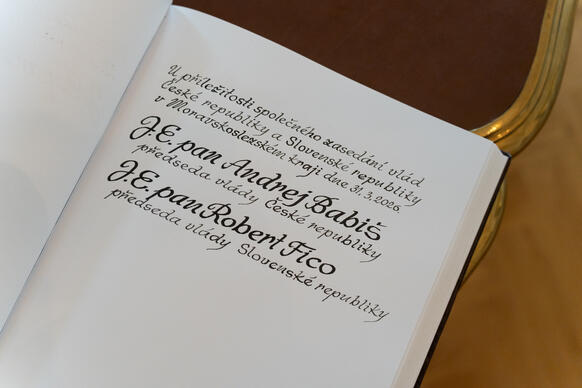 U příležitosti společného zasedání vlád
České republiky a Slovenské republiky
v Moravskoslezském kraji dne 31. 3. 2026.
J. E. pan Andrej Babiš
předseda vlády České republiky
J. E. pan Robert Fico
předseda vlády Slovenské republiky